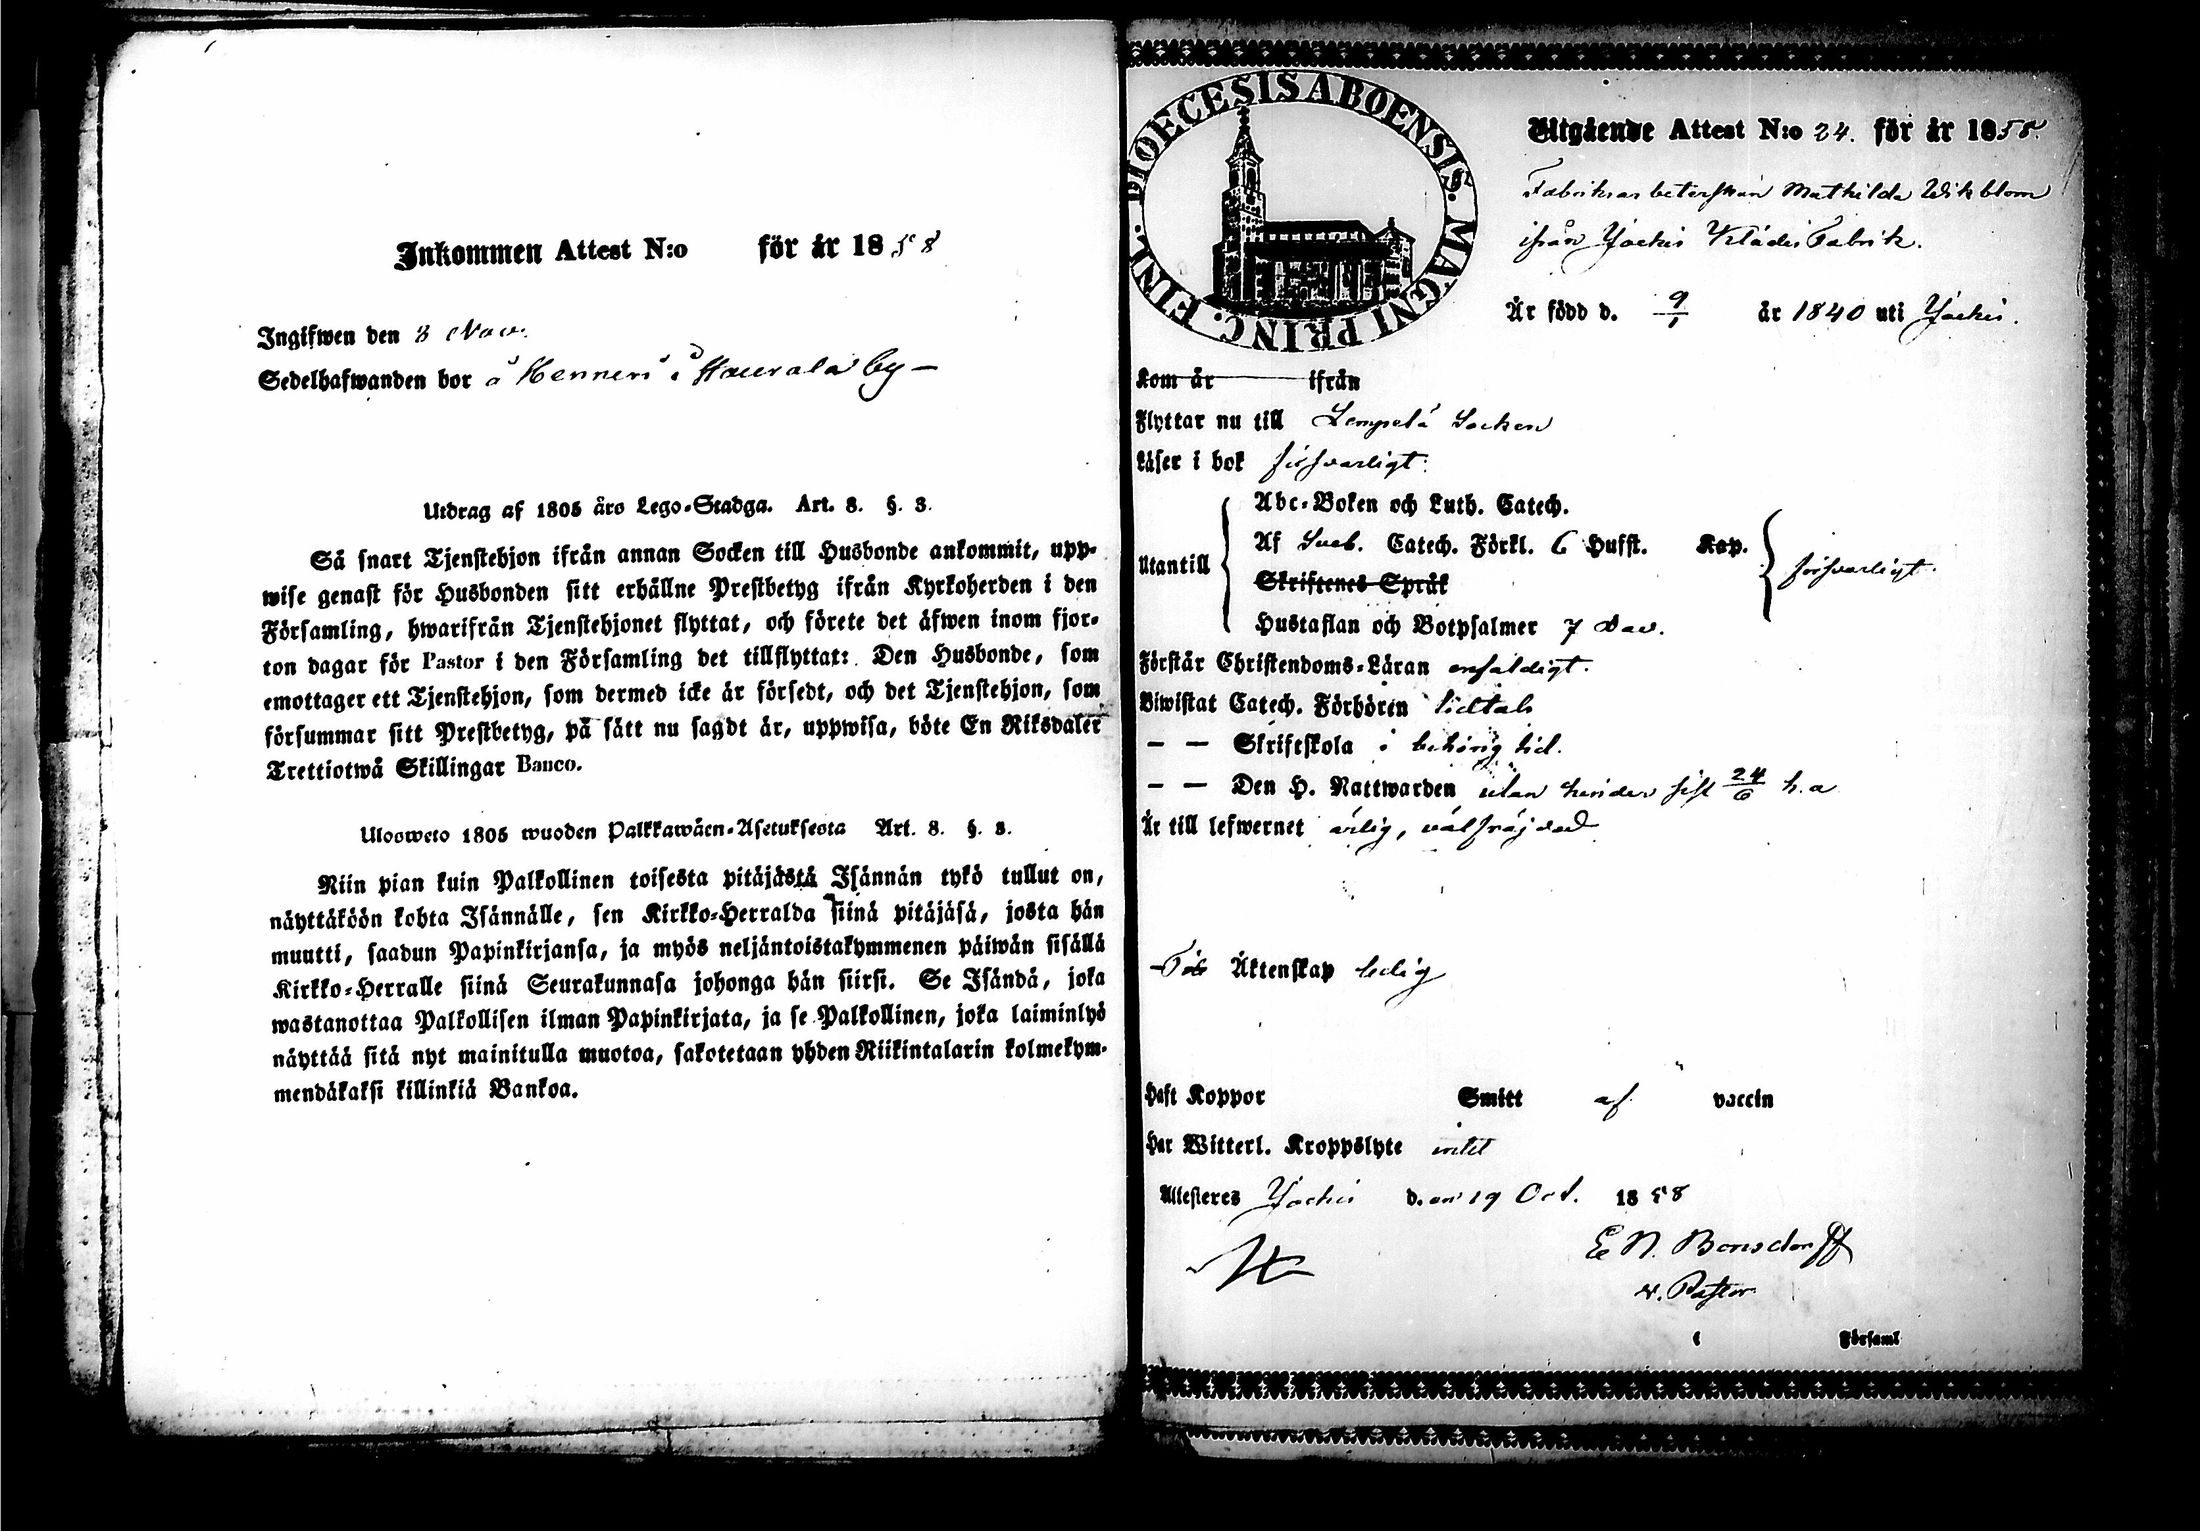 Inkommen Attest N:o för år 1858
Ingifwen den 3 Nov.
Sedelhafwanden bor å Henneri i Kourala by —
Utdrag af 1805 års Lego-Stadga. Art. 8. §. 3.
Så snart Tjenstehjon ifrån annan Socken till Husbonde ankommit, upp-
wise genast för Husbonden sitt erhållne Prestbetyg ifrån Kyrkoherden i den
Församling, hwarifrån Tjenstehjonet flyttat, och förete det äfwen inom fjor-
ton dagar för Pastor i den Församling det tillflyttat: Den Husbonde, som
emottager ett Tjenstehjon, som dermed icke är försedt, och det Tjenstehjon, som
försummar sitt Prestbetyg, på sätt nu sagdt är, uppwisa, böte En Riksdaler
Trettiotwå Skillingar Banco.
Ulosweto 1805 wuoden Palkkawäen-Asetuksesta Art. 8. §. 3.
Niin pian kuin Palkollinen toisesta pitäjästä Isännän tykö tullut on,
näyttäköön kohta Isännälle, sen Kirkko-Herralda siinä pitäjäsä, josta hän
muutti, saadun Papinkirjansa, ja myös neljäntoistakymmenen päiwän sisällä
Kirkko-Herralle siinä Seurakunnasa johonga hän siirsi. Se Isändä, joka
wastanottaa Palkollisen ilman Papinkirjata, ja se Palkollinen, joka laiminlyö
näyttää sitä nyt mainitulla muotoa, sakotetaan yhden Riikintalarin kolmekym-
mendäkaksi killinkiä Bankoa.
DIOECESIS ABOENSIS. MAGNI PRINC. FINL.
Utgående Attest N:o 24. för år 1858.
Fabriksarbeterskan Mathilda Wikblom
ifrån Jockis Klädes Fabrik.
Är född d. 9/1 år 1840 uti Jockis.
Kom år ifrån
Flyttar nu till Lempelä Socken
Läser i bok försvarligt.
Utantill
Abc-Boken och Luth. Catech.
Af Sveb. Catech. Förkl. 6 Hufst. Kap.
Skriftenes Språk
Hustaflan och Botpsalmer 7 Dav.
försvarligt.
Förstår Christendoms-Läran enfaldigt.
Biwistat Catech. Förhören tidtals
— — Skriftskola i behörig tid.
— — Den H. Nattwarden utan hinder sist 24/6 h.a
Är till lefwernet ärlig, välfräjdad
Till Äktenskap ledig
Haft Koppor Smitt af vaccin
Har Witterl. Kroppslyte intet
Attesteres Jockis den 19 Oct. 1858
E N. Bonsdorff
v. Pastor
i Församl